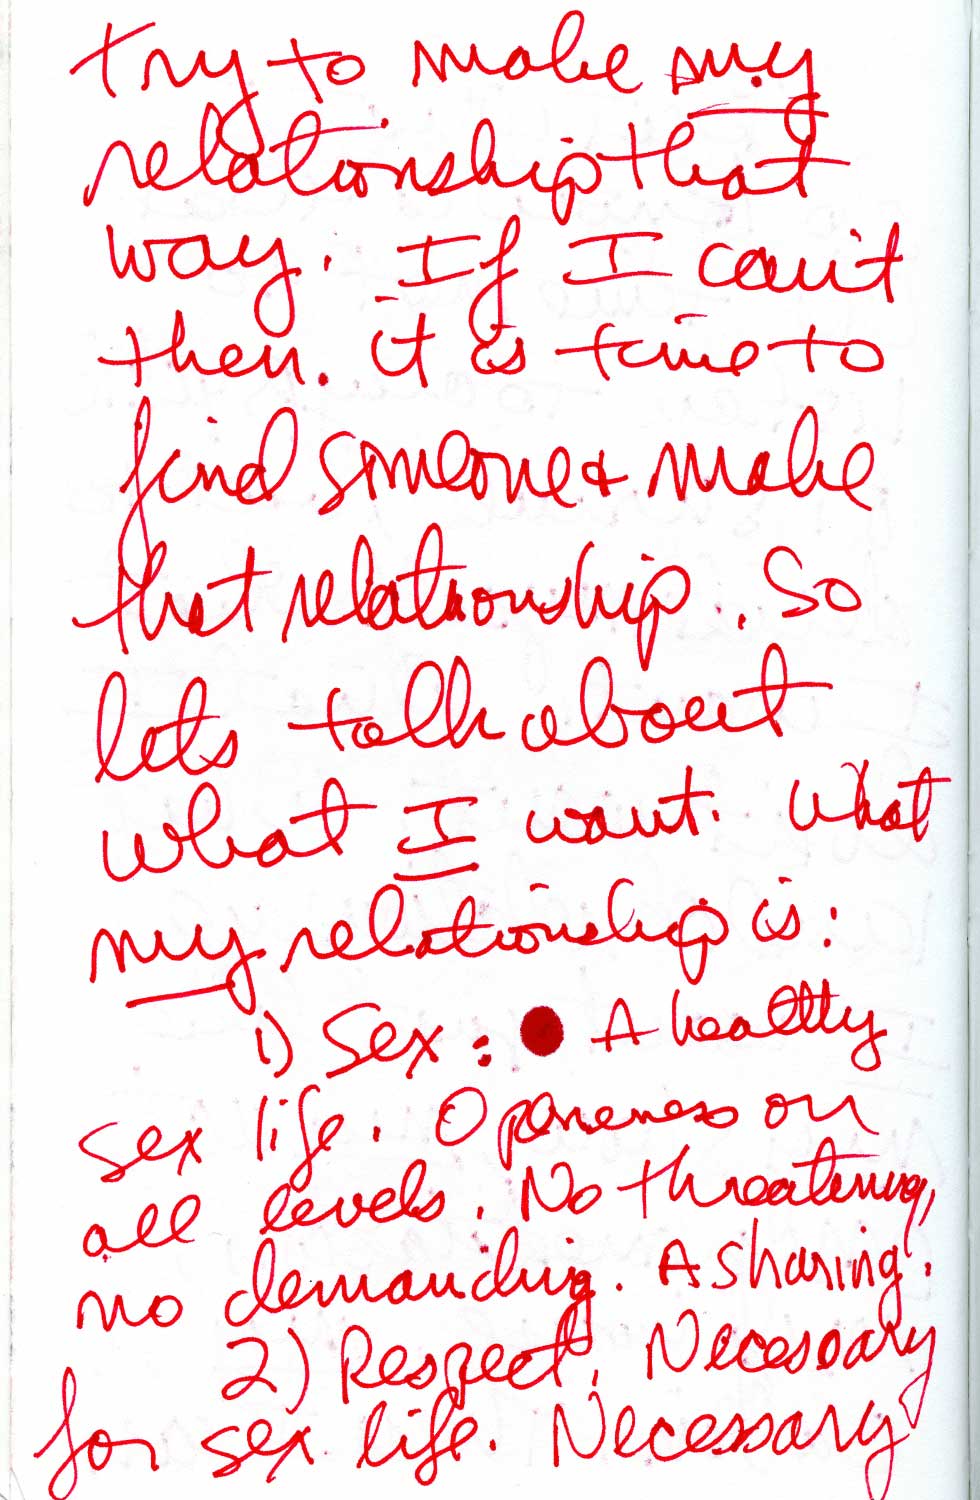 try to make my
relationship that
way. If I can't
then. it is time to
find someone & make
that relationship. So
lets talk about
what I want. What
my relationship is:
1) Sex: A healthy
sex life. Openeness on
all levels. No threatening,
no demanding. A sharing.
2) Respect. Necessary
for sex life. Necessary